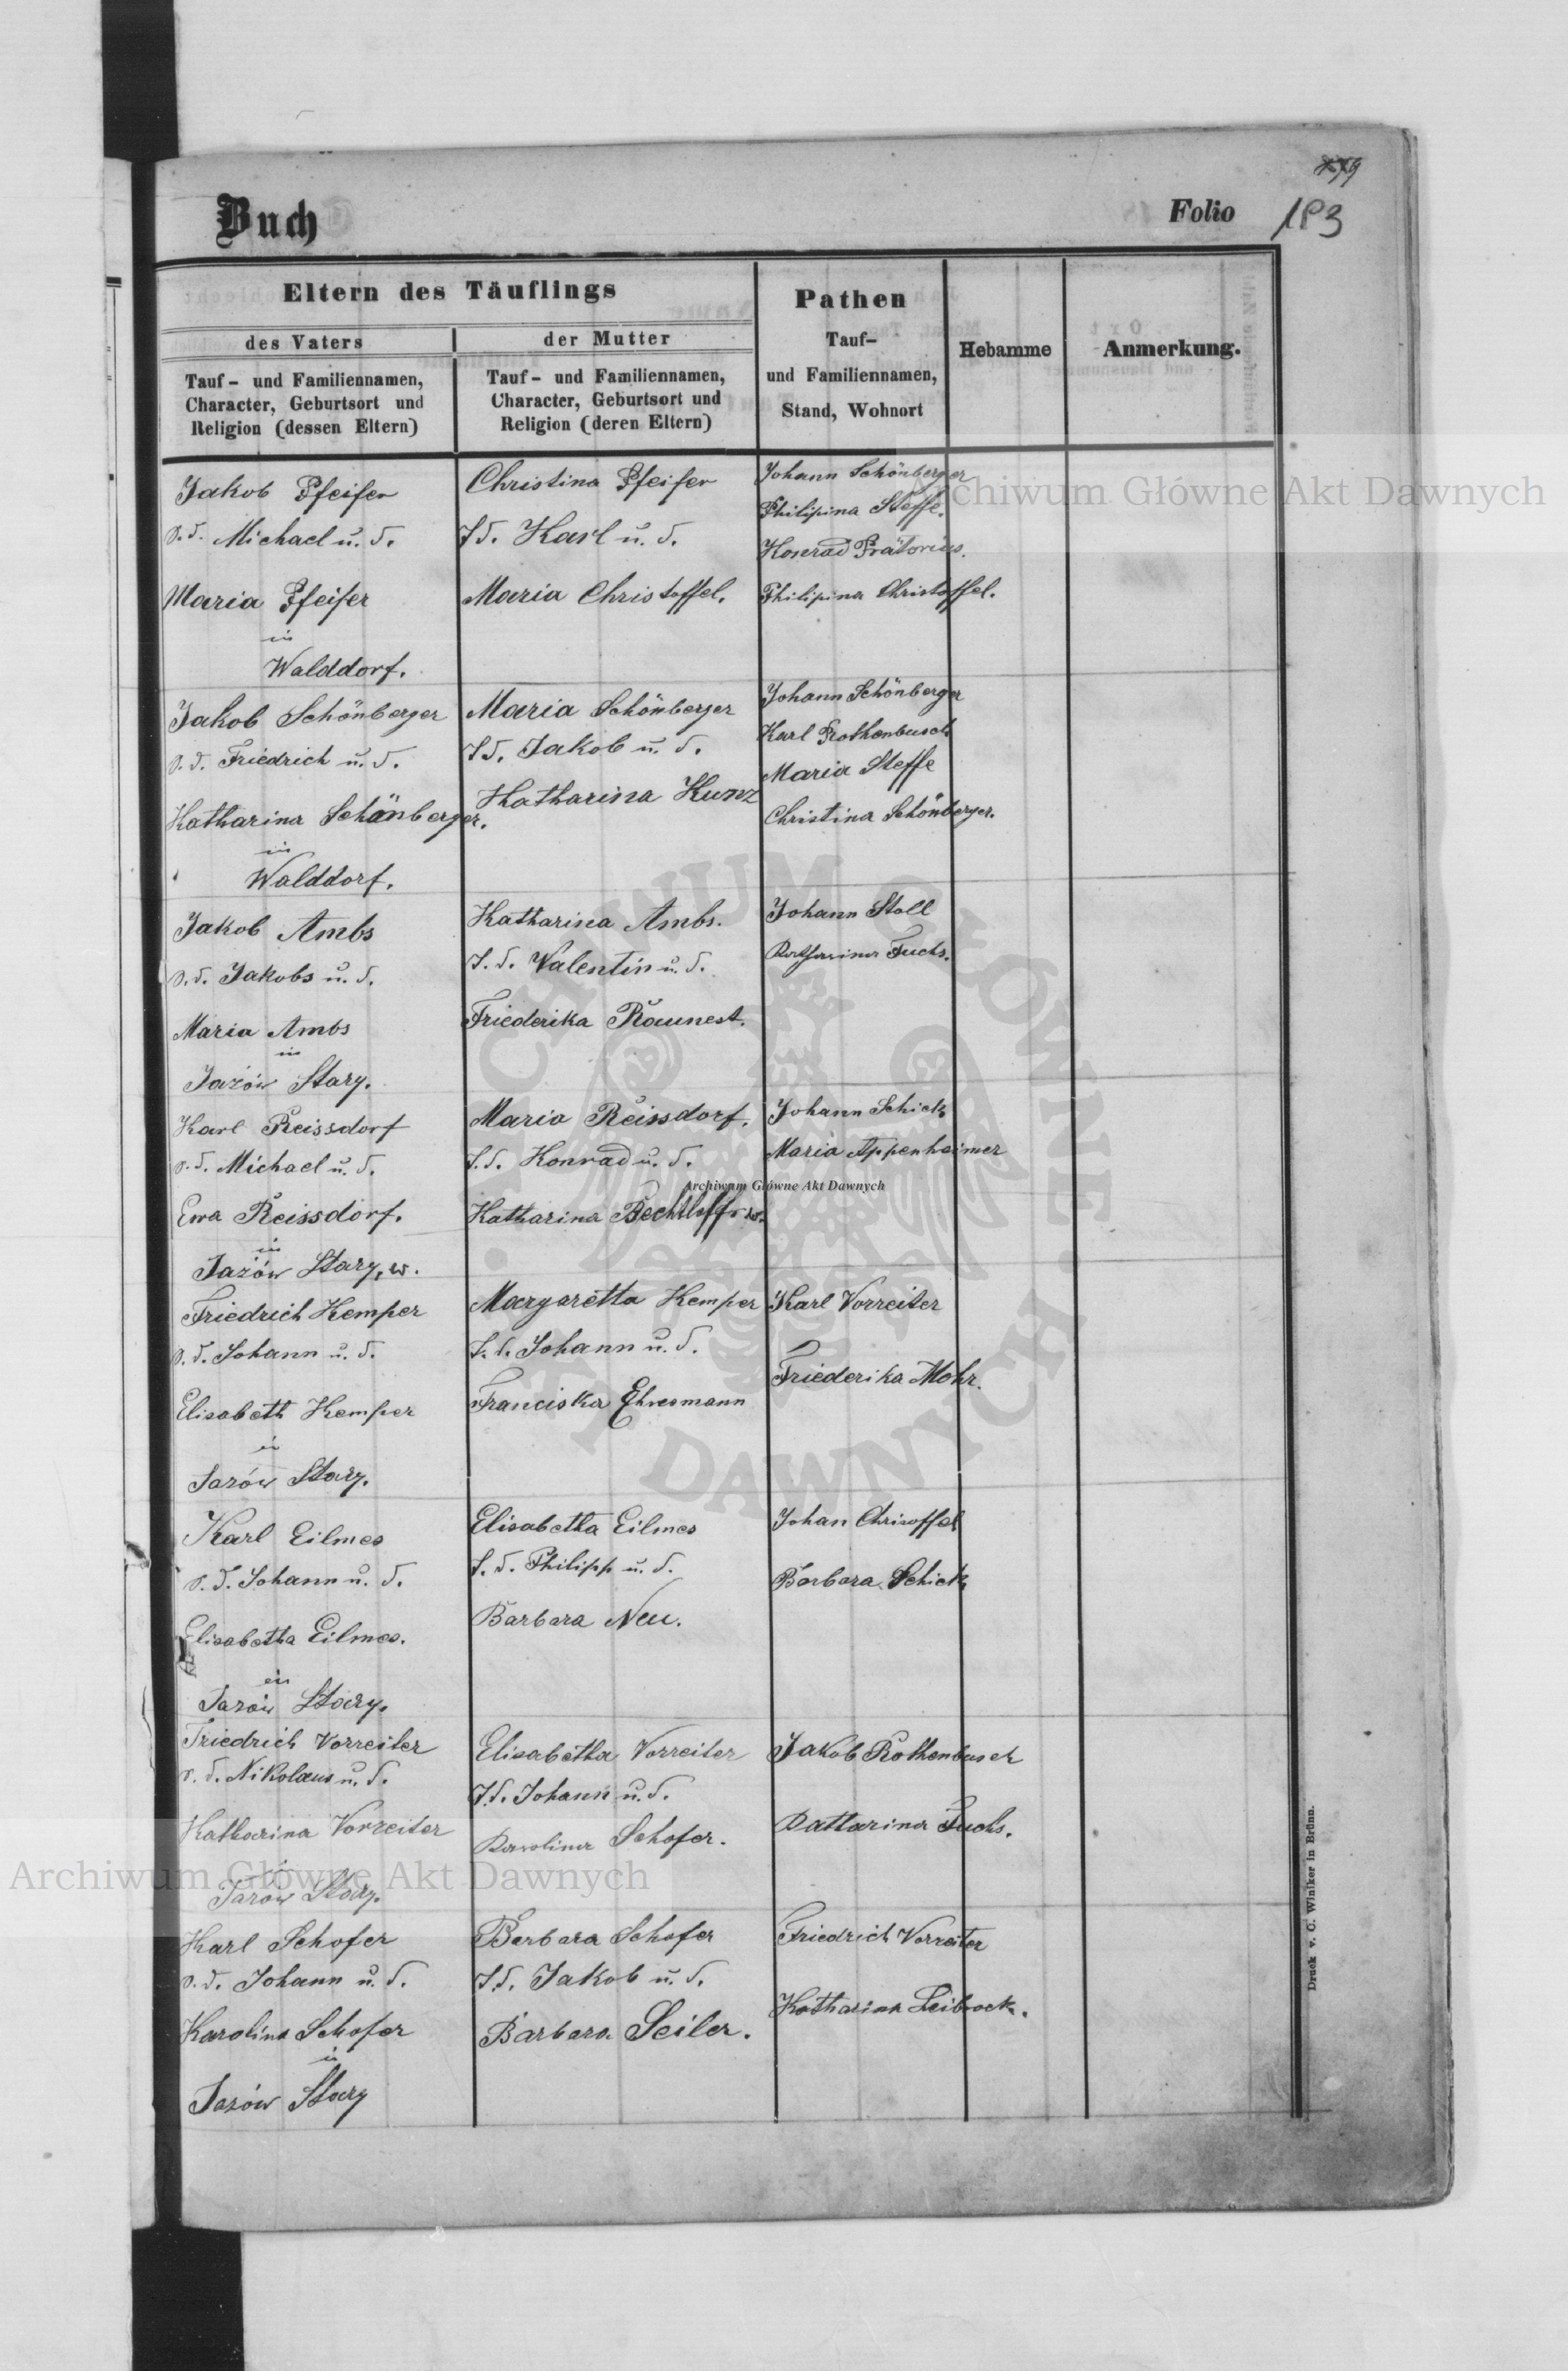 Buch
Folio 183
Eltern des Täuflings
des Vaters
der Mutter
Tauf- und Familiennamen,
Character, Geburtsort und
Religion (dessen Eltern)
Tauf- und Familiennamen,
Character, Geburtsort und
Religion (deren Eltern)
Pathen
Tauf-
und Familiennamen,
Stand, Wohnort
Hebamme
Anmerkung.
Jakob Pfeifer
s. d. Michael u. d.
Maria Pfeifer
in
Walddorf.
Christina Pfeifer
T d. Karl u. d.
Maria Christoffel.
Johann Schönberger
Philipina Steffe.
Konrad Prätorius.
Philipina Christoffel.
Jakob Schönberger
s. d. Friedrich u. d.
Katharina Schönberger.
in
Walddorf.
Maria Schönberger
T d. Jakob u. d.
Katharina Kunz
Johann Schönberger
Karl Rothenbusch
Maria Steffe
Christina Schönberger.
Jakob Ambs
s. d. Jakobs u. d.
Maria Ambs
in
Jazów Stary.
Katharina Ambs.
T. d. Valentin u. d.
Friederika Raunest.
Johann Stoll
Katharina Fuchs.
Karl Reissdorf
s. d. Michael u. d.
Ewa Reissdorf.
in
Jazów Stary, w.
Maria Reissdorf.
T. d. Konrad u. d.
Katharina Bechtloff
Johann Schick
Maria Appenheimer
Friedrich Kemper
s. d. Johann u. d.
Elisabeth Kemper
in
Jazów Stary.
Margaretta Kemper
T. d. Johann u. d.
Franciska Ehresmann
Karl Vorreiter
Friederika Mohr.
Karl Eilmes
s. d. Johann u. d.
Elisabetha Eilmes.
in
Jazów Stary.
Elisabetha Eilmes
T. d. Philipp u. d.
Barbara Neu.
Johan Chrisoffel
Barbara Schick
Friedrich Vorreiter
s. d. Nikolaus u. d.
Katharina Vorreiter
in
Jazów Stary.
Elisabetha Vorreiter
T. d. Johann u. d.
Karolina Schofer.
Jakob Rothenbusch
Kattarina Fuchs.
Karl Schofer
s. d. Johann u. d.
Karolina Schofer
in
Jazów Stary
Barbara Schofer
T. d. Jakob u. d.
Barbara Seiler.
Friedrich Vorreiter
Katharina Leibrock.
Druck v. C. Winiker in Brünn.
Archiwum Główne Akt Dawnych
Archiwum Główne Akt Dawnych
Archiwum Główne Akt Dawnych
ARCHIWUM GŁÓWNE AKT DAWNYCH